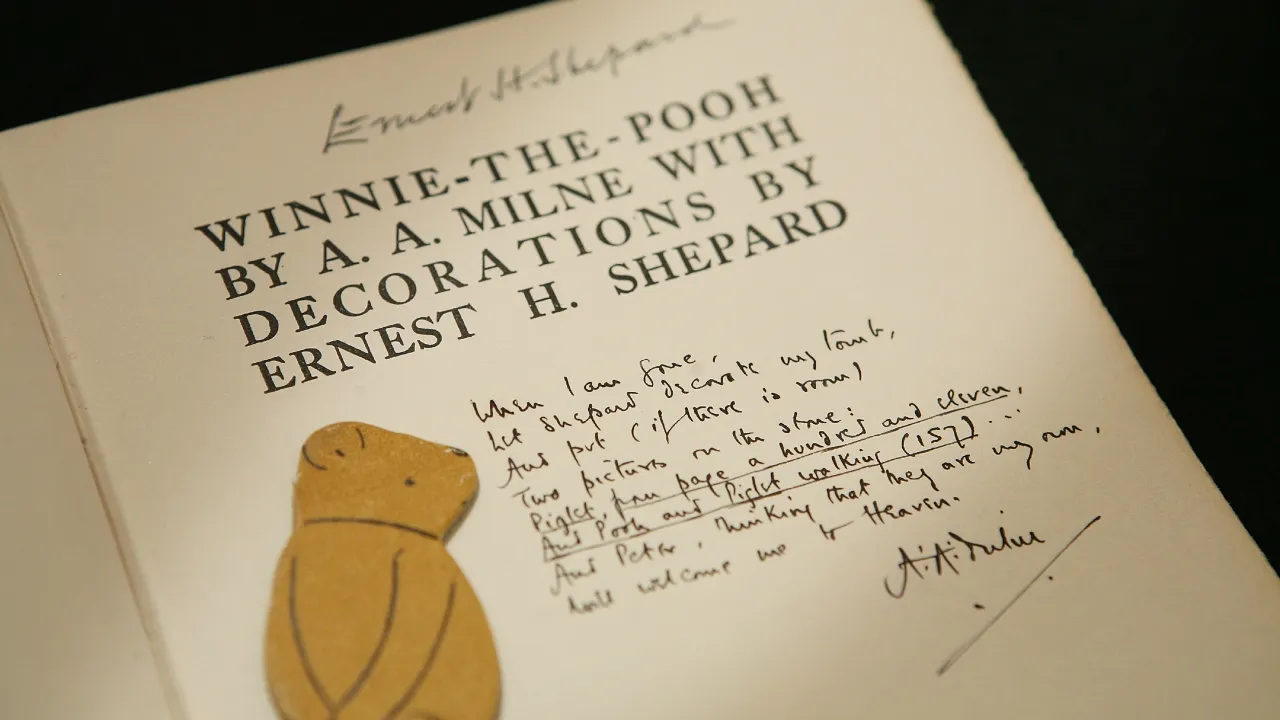 Ernest H. Shepard
WINNIE-THE-POOH
BY A. A. MILNE WITH
DECORATIONS BY
ERNEST H. SHEPARD
When I am gone,
Let Shepard decorate my tomb,
And put (if there is room)
Two pictures on the stone:
Piglet, from page a hundred and eleven,
And Pooh and Piglet walking (157)...
And Peter, thinking that they are my own,
Will welcome me to Heaven.
A.A.Milne